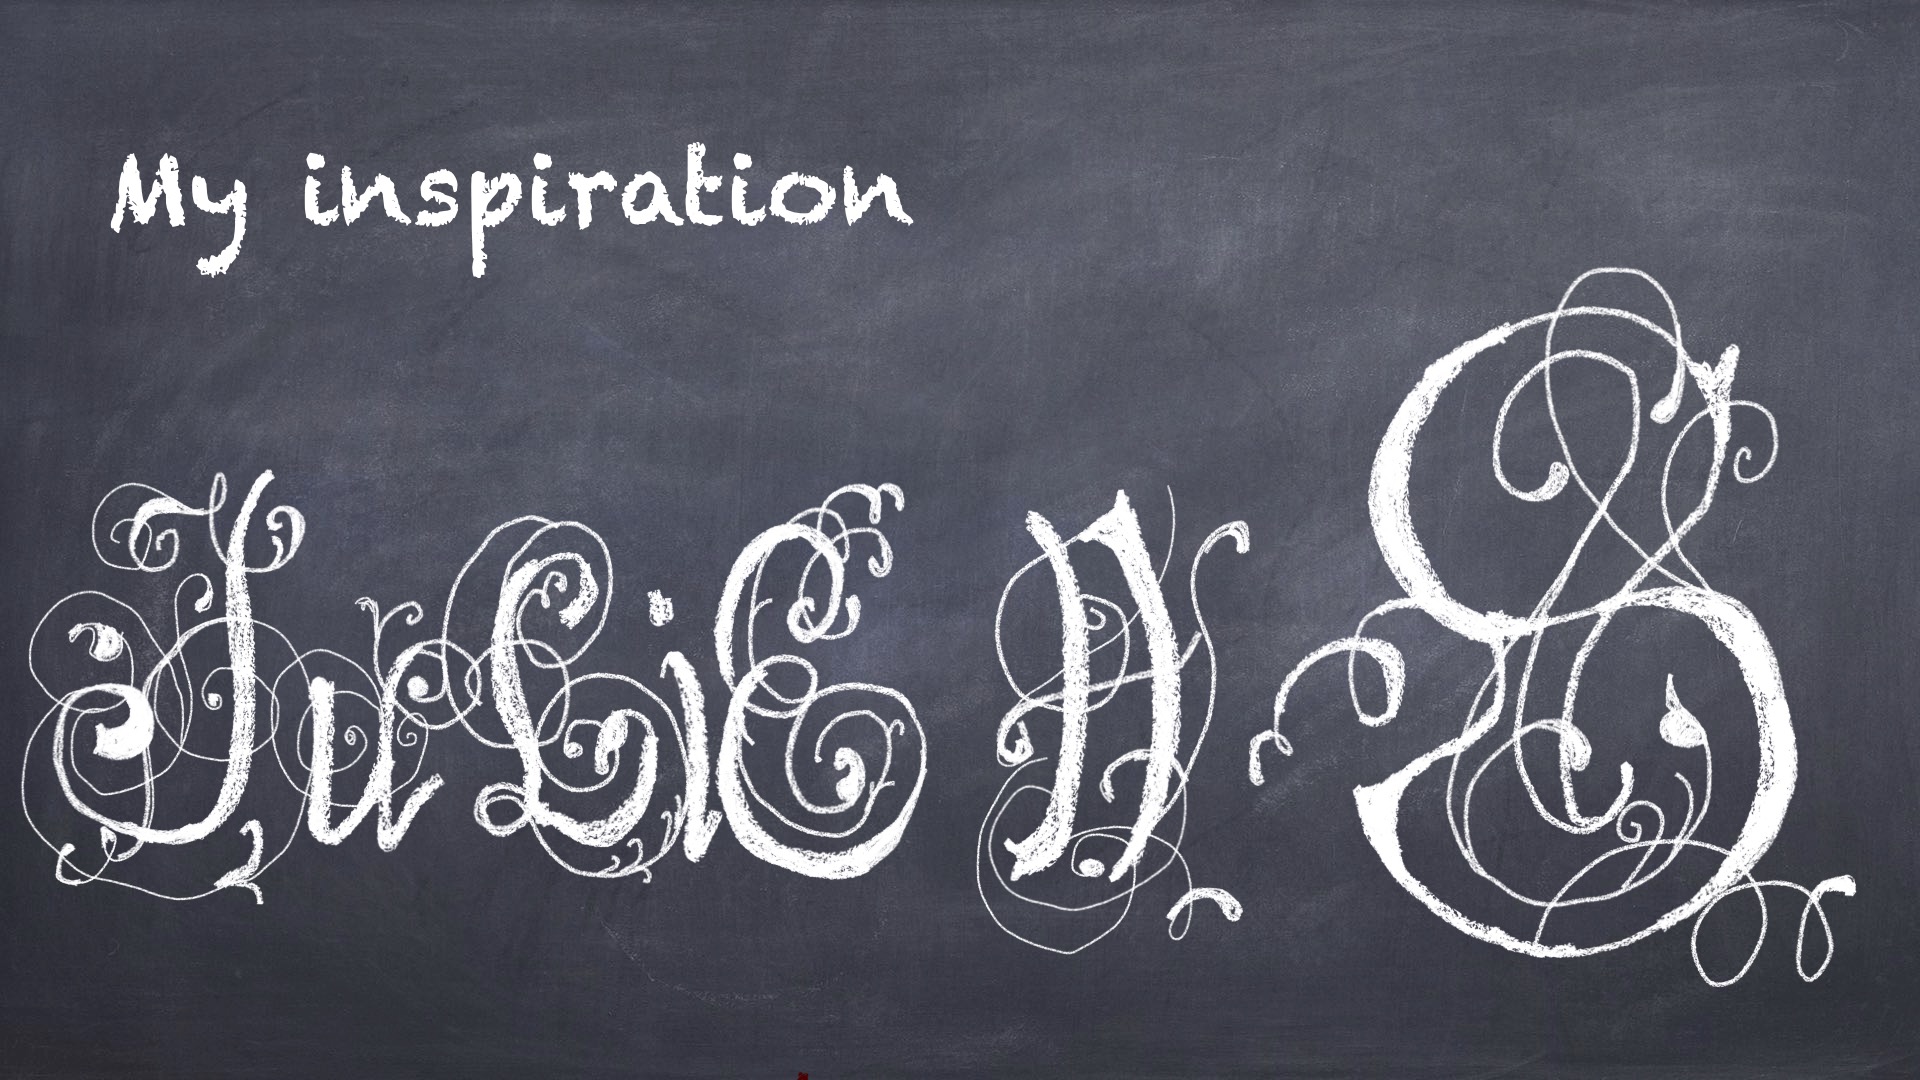 My inspiration
JuLiE N S